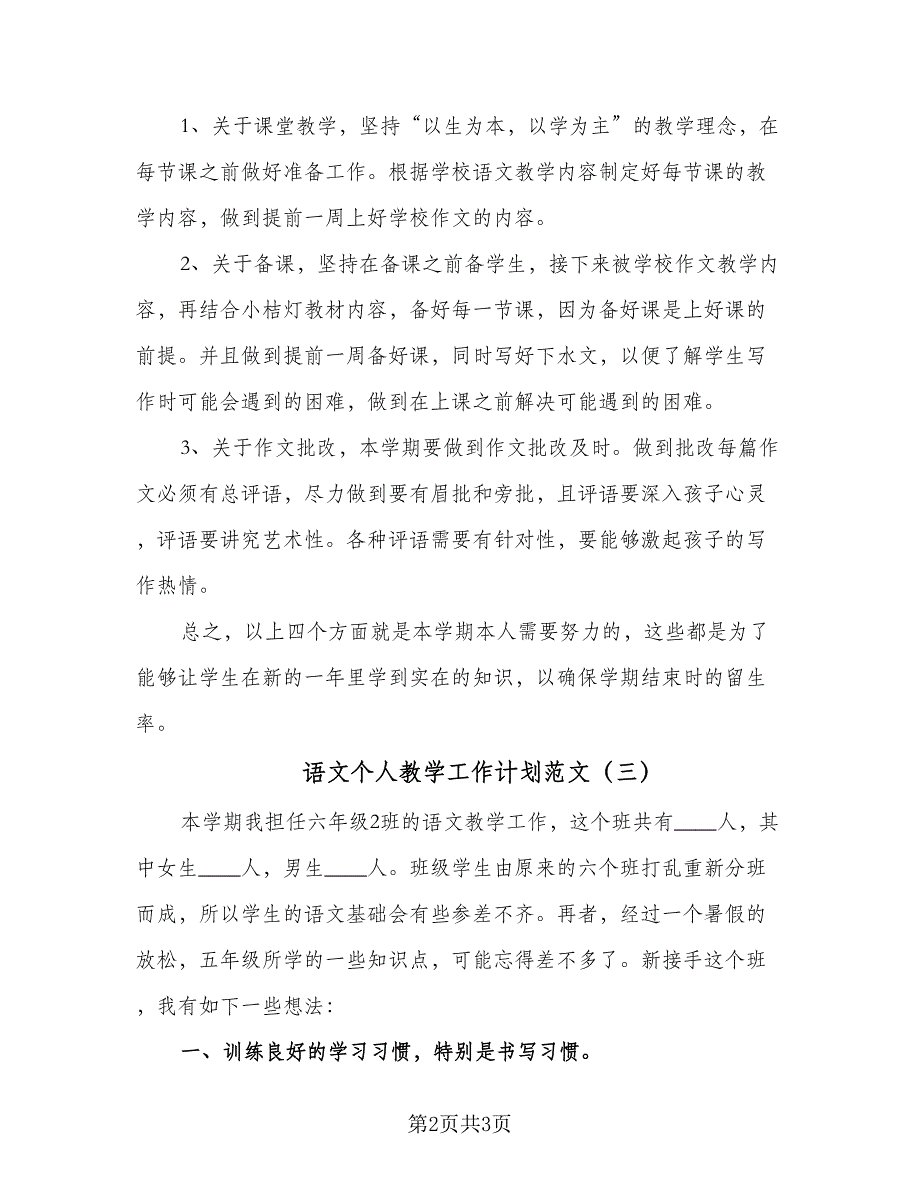 1、关于课堂教学，坚持“以生为本，以学为主”的教学理念，在
每节课之前做好准备工作。根据学校语文教学内容制定好每节课的教
学内容，做到提前一周上好学校作文的内容。
2、关于备课，坚持在备课之前备学生，接下来被学校作文教学内
容，再结合小桔灯教材内容，备好每一节课，因为备好课是上好课的
前提。并且做到提前一周备好课，同时写好下水文，以便了解学生写
作时可能会遇到的困难，做到在上课之前解决可能遇到的困难。
3、关于作文批改，本学期要做到作文批改及时。做到批改每篇作
文必须有总评语，尽力做到要有眉批和旁批，且评语要深入孩子心灵
，评语要讲究艺术性。各种评语需要有针对性，要能够激起孩子的写
作热情。
总之，以上四个方面就是本学期本人需要努力的，这些都是为了
能够让学生在新的一年里学到实在的知识，以确保学期结束时的留生
率。
语文个人教学工作计划范文（三）
本学期我担任六年级2班的语文教学工作，这个班共有____人，其
中女生____人，男生____人。班级学生由原来的六个班打乱重新分班
而成，所以学生的语文基础会有些参差不齐。再者，经过一个暑假的
放松，五年级所学的一些知识点，可能忘得差不多了。新接手这个班
，我有如下一些想法：
一、训练良好的学习习惯，特别是书写习惯。
第2页共3页